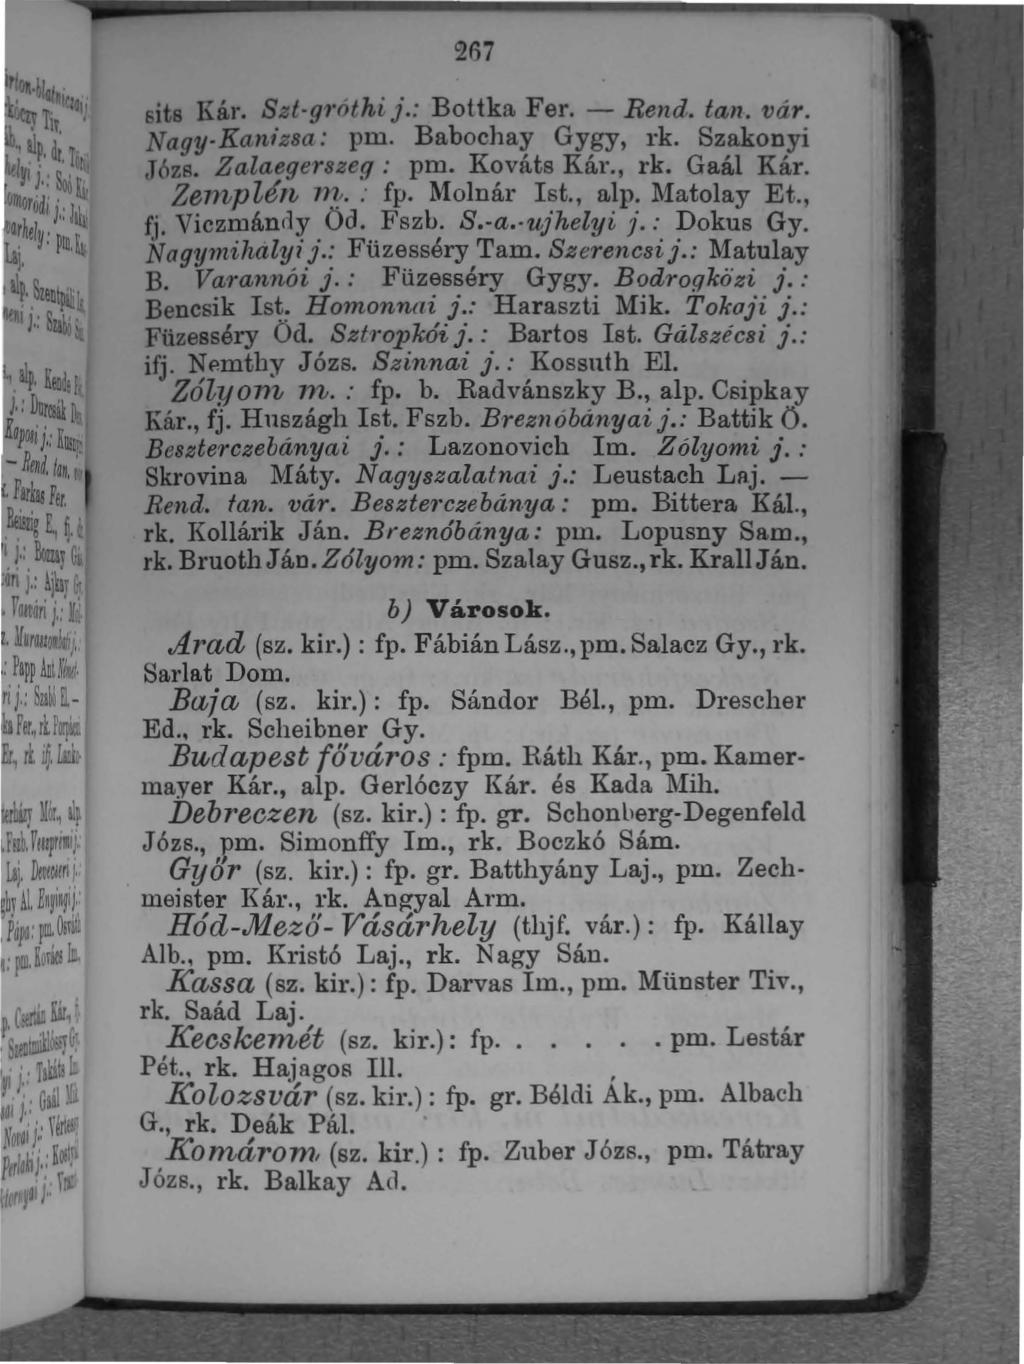 267
sits Kár. Szt-gróthi j.: Bottka Fer. — Rend. tan. vár.
Nagy-Kanizsa: pm. Babochay Gygy, rk. Szakonyi
Józs. Zalaegerszeg: pm. Kováts Kár., rk. Gaál Kár.
Zemplén m.: fp. Molnár Ist., alp. Matolay Et.,
fj. Viczmándy Öd. Fszb. S.-a.-ujhelyi j.: Dokus Gy.
Nagymihályi j.: Füzesséry Tam. Szerencsi j.: Matulay
B. Varannói j.: Füzesséry Gygy. Bodrogközi j.:
Bencsik Ist. Homonnai j.: Haraszti Mik. Tokaji j.:
Füzesséry Öd. Sztropkói j.: Bartos Ist. Gálszécsi j.:
ifj. Nemthy Józs. Szinnai j.: Kossuth El.
Zólyom m.: fp. b. Radvánszky B., alp. Csipkay
Kár., fj. Huszágh Ist. Fszb. Breznóbányai j.: Battik Ö.
Beszterczebányai j.: Lazonovich Im. Zólyomi j.:
Skrovina Máty. Nagyszalatnai j.: Leustach Laj. —
Rend. tan. vár. Beszterczebánya: pm. Bittera Kál.,
rk. Kollárik Ján. Breznóbánya: pm. Lopusny Sam.,
rk. Bruoth Ján. Zólyom: pm. Szalay Gusz., rk. Krall Ján.
b) Városok.
Arad (sz. kir.): fp. Fábián Lász., pm. Salacz Gy., rk.
Sarlat Dom.
Baja (sz. kir.): fp. Sándor Bél., pm. Drescher
Ed., rk. Scheibner Gy.
Budapest főváros: fpm. Ráth Kár., pm. Kamer-
mayer Kár., alp. Gerlóczy Kár. és Kada Mih.
Debreczen (sz. kir.): fp. gr. Schonberg-Degenfeld
Józs., pm. Simonffy Im., rk. Boczkó Sám.
Győr (sz. kir.): fp. gr. Batthyány Laj., pm. Zech-
meister Kár., rk. Angyal Arm.
Hód-Mező-Vásárhely (thjf. vár.): fp. Kállay
Alb., pm. Kristó Laj., rk. Nagy Sán.
Kassa (sz. kir.): fp. Darvas Im., pm. Münster Tiv.,
rk. Saád Laj.
Kecskemét (sz. kir.): fp. . . . . . . pm. Lestár
Pét., rk. Hajagos Ill.
Kolozsvár (sz. kir.): fp. gr. Béldi Ák., pm. Albach
G., rk. Deák Pál.
Komárom (sz. kir.): fp. Zuber Józs., pm. Tátray
Józs., rk. Balkay Ad.